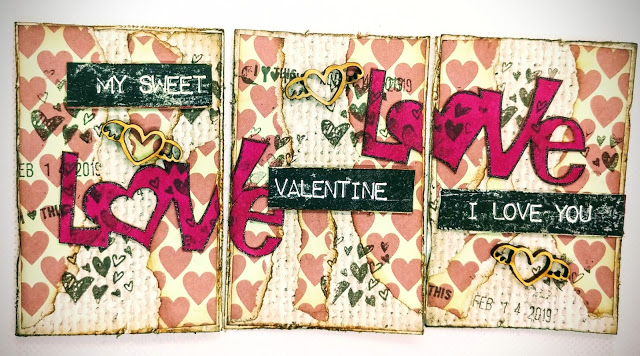 MY SWEET
FEB 1 4 2019
LOVE
THIS
VALENTINE
2019
LOVE
I LOVE YOU
THIS
FEB 1 4 2019